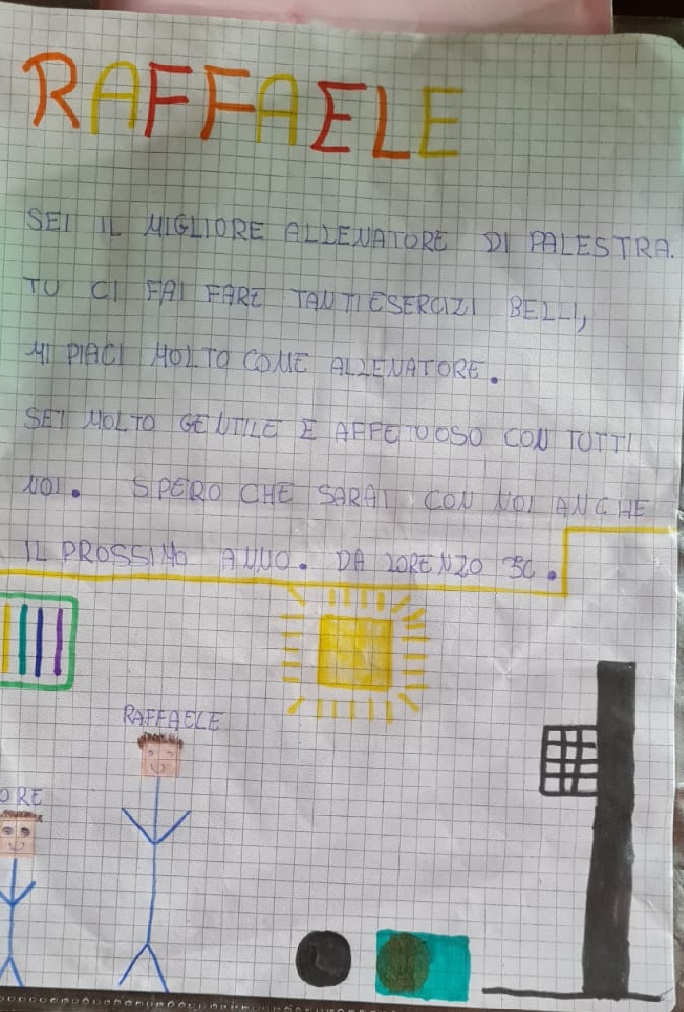 RAFFAELE
SEI IL MIGLIORE ALLENATORE DI PALESTRA.
TU CI FAI FARE TANTI ESERCIZI BELLI,
MI PIACI MOLTO COME ALLENATORE.
SEI MOLTO GENTILE E AFFETUOSO CON TUTTI
NOI. SPERO CHE SARAI CON NOI ANCHE
IL PROSSIMO ANNO. DA LORENZO 3C.
RAFFAELE
ORE